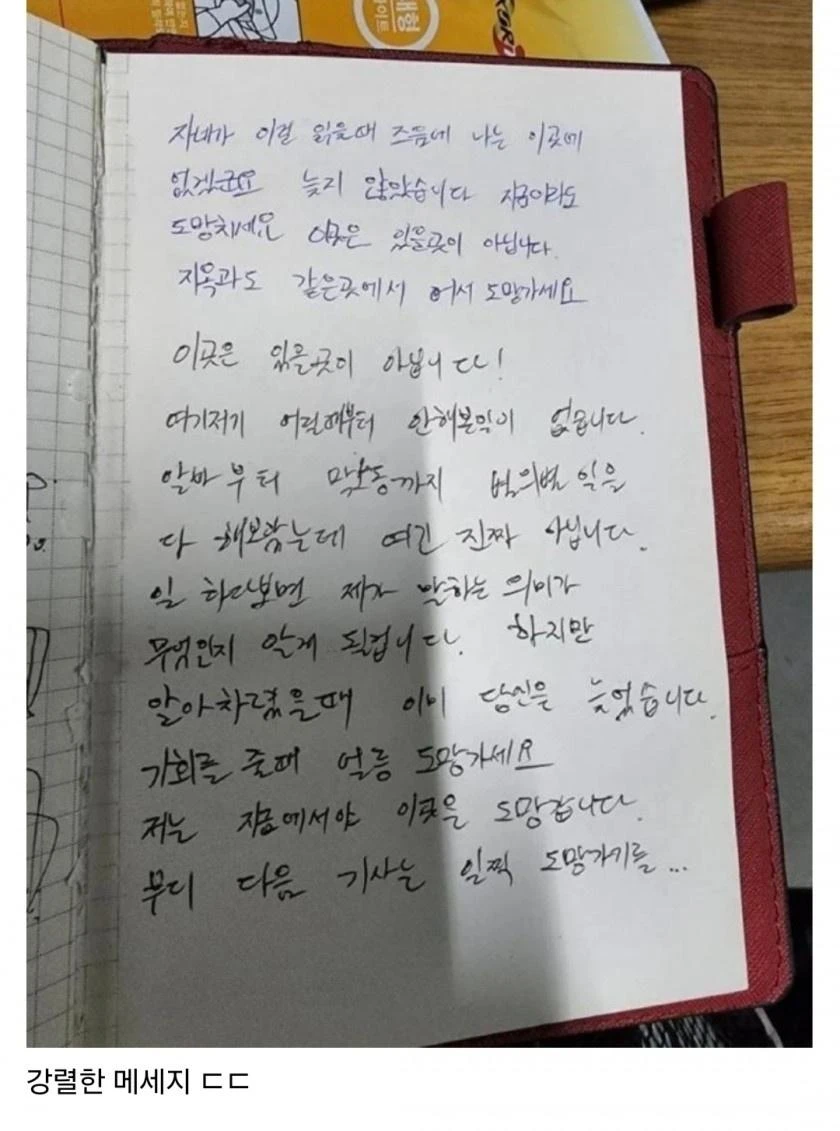 대형
자네가 이럴 읽을때 즈음에 나는 이곳에
없겠군요 늦지 않았습니다 지금이라도
도망치세요 이곳은 있을곳이 아닙니다.
지옥과도 같은곳에서 어서 도망가세요
이곳은 있을곳이 아닙니다!
여기저기 어릴때부터 안해본일이 없습니다.
알바부터 막노동까지 별의별 일을
다 해보았는데 여긴 진짜 아닙니다.
일 하다보면 제가 말하는 의미가
무엇인지 알게 될겁니다. 하지만
알아차렸을때 이미 당신은 늦었습니다.
기회를 줄때 얼릉 도망가세요
저는 지금에서야 이곳을 도망갑니다.
부디 다음 기사는 일찍 도망가기를...
강렬한 메세지 ㄷㄷ